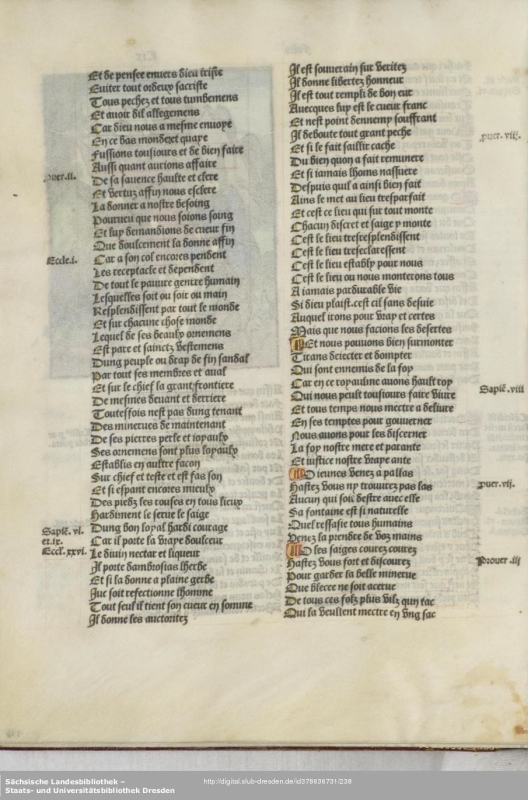 Et de pensee envers dieu triste
Eviter tout ordeux sacriste
Tous pechez et tous tumbemens
Et avoir dil allegemens
Car dieu nous a mesme envoye
En ce bas monde
Fussions tousiours et de bien faire
Aussi quant aurions affaire
puer. ii.
De sa savence haulte et clere
Et vertuz affin nous esclere
La donner a nostre besoing
Pourveu que nous soions soing
Et luy demandions de cueur fin
Que doulcement la donne affin
Eccle. i.
Car a son col encores pendent
Les receptacle et dependent
De tout le pauvre gentre humain
Lesquelles soit ou soir ou main
Resplendissent par tout le monde
Et sur chacune chose monde
Lequel de ses beaulx ornemens
Est pare et sainctz vestemens
Dung peuple ou drap de fin sandal
Par tout ses membres et aval
Et sur le chief la grant frontiere
De mesmes devant et derriere
Toutesfois nest pas dung tenant
Des minerves de maintenant
De ses pierres perle et ioyaulx
Ses ornemens sont plus loyaulx
Establis en aultre facon
Sur chief et teste et est fas son
Et si espant encores mieulx
Des piedz les rouses en tous lieux
Hardiment se serve le saige
Sapiē. vi.
et. ix.
Eccl. xxvi.
Dung bon loyal hardi courage
Car il porte la vraye doulceur
Le divin nectar et liqueur
Il porte dambrosias lherbe
Et si la donne a plaine gerbe
Que soit refectionne lhomme
Tout seul il tient son cueur en somme
Il donne les auctoritez
Il est souverain sur veritez
Il donne libertez honneur
Il est tout templi de bon eur
Avecques luy est le cueur franc
Et nest point dennemy souffrant
puer. viij.
Il deboute tout grant peche
Et si le fait saillir cache
Du bien quon a fait remunere
Et si iamais lhome nassuere
Despuis quil a ainsi bien fait
Ains le met au lieu tresparfait
Et cest ce lieu qui sur tout monte
Chacun discret et saige y monte
Cest le lieu tresresplendissent
Cest le lieu tresclaressent
Cest le lieu estably pour nous
Cest le lieu ou nous monterons tous
A iamais pardurable vie
Si dieu plaist. cest cil sans desvie
Auquel irons pour vray et certes
Mais que nous facions les desertes
Et nous pouvons bien surmonter
Tirans deiecter et dompter
Qui sont ennemis de la foy
Car en ce royaulme avons hault roy
Sapiē. viii
Qui nous peult tousiours faire vivre
Et tous temps nous mectre a delivre
En ses temptes pour gouverner
Nous avons pour les discerner
La foy nostre mere et parante
Et iustice nostre vraye ante
O ieunes venez a pallas
puer. vij.
Hastez vous ny trouvrez pas las
Aucun qui soit destre avec elle
Sa fontaine est si naturelle
Quel ressasie tous humains
Venez la prendre de voz mains
O les saiges courez courez
Prouer. iij
Hastez vous fort et discourez
Pour garder la belle minerve
Que blecee ne soit acerve
De tous ces folz plus vilz qun tac
Qui la veullent mectre en ung sac
Sächsische Landesbibliothek –
Staats- und Universitätsbibliothek Dresden
http://digital.slub-dresden.de/id378636731/238